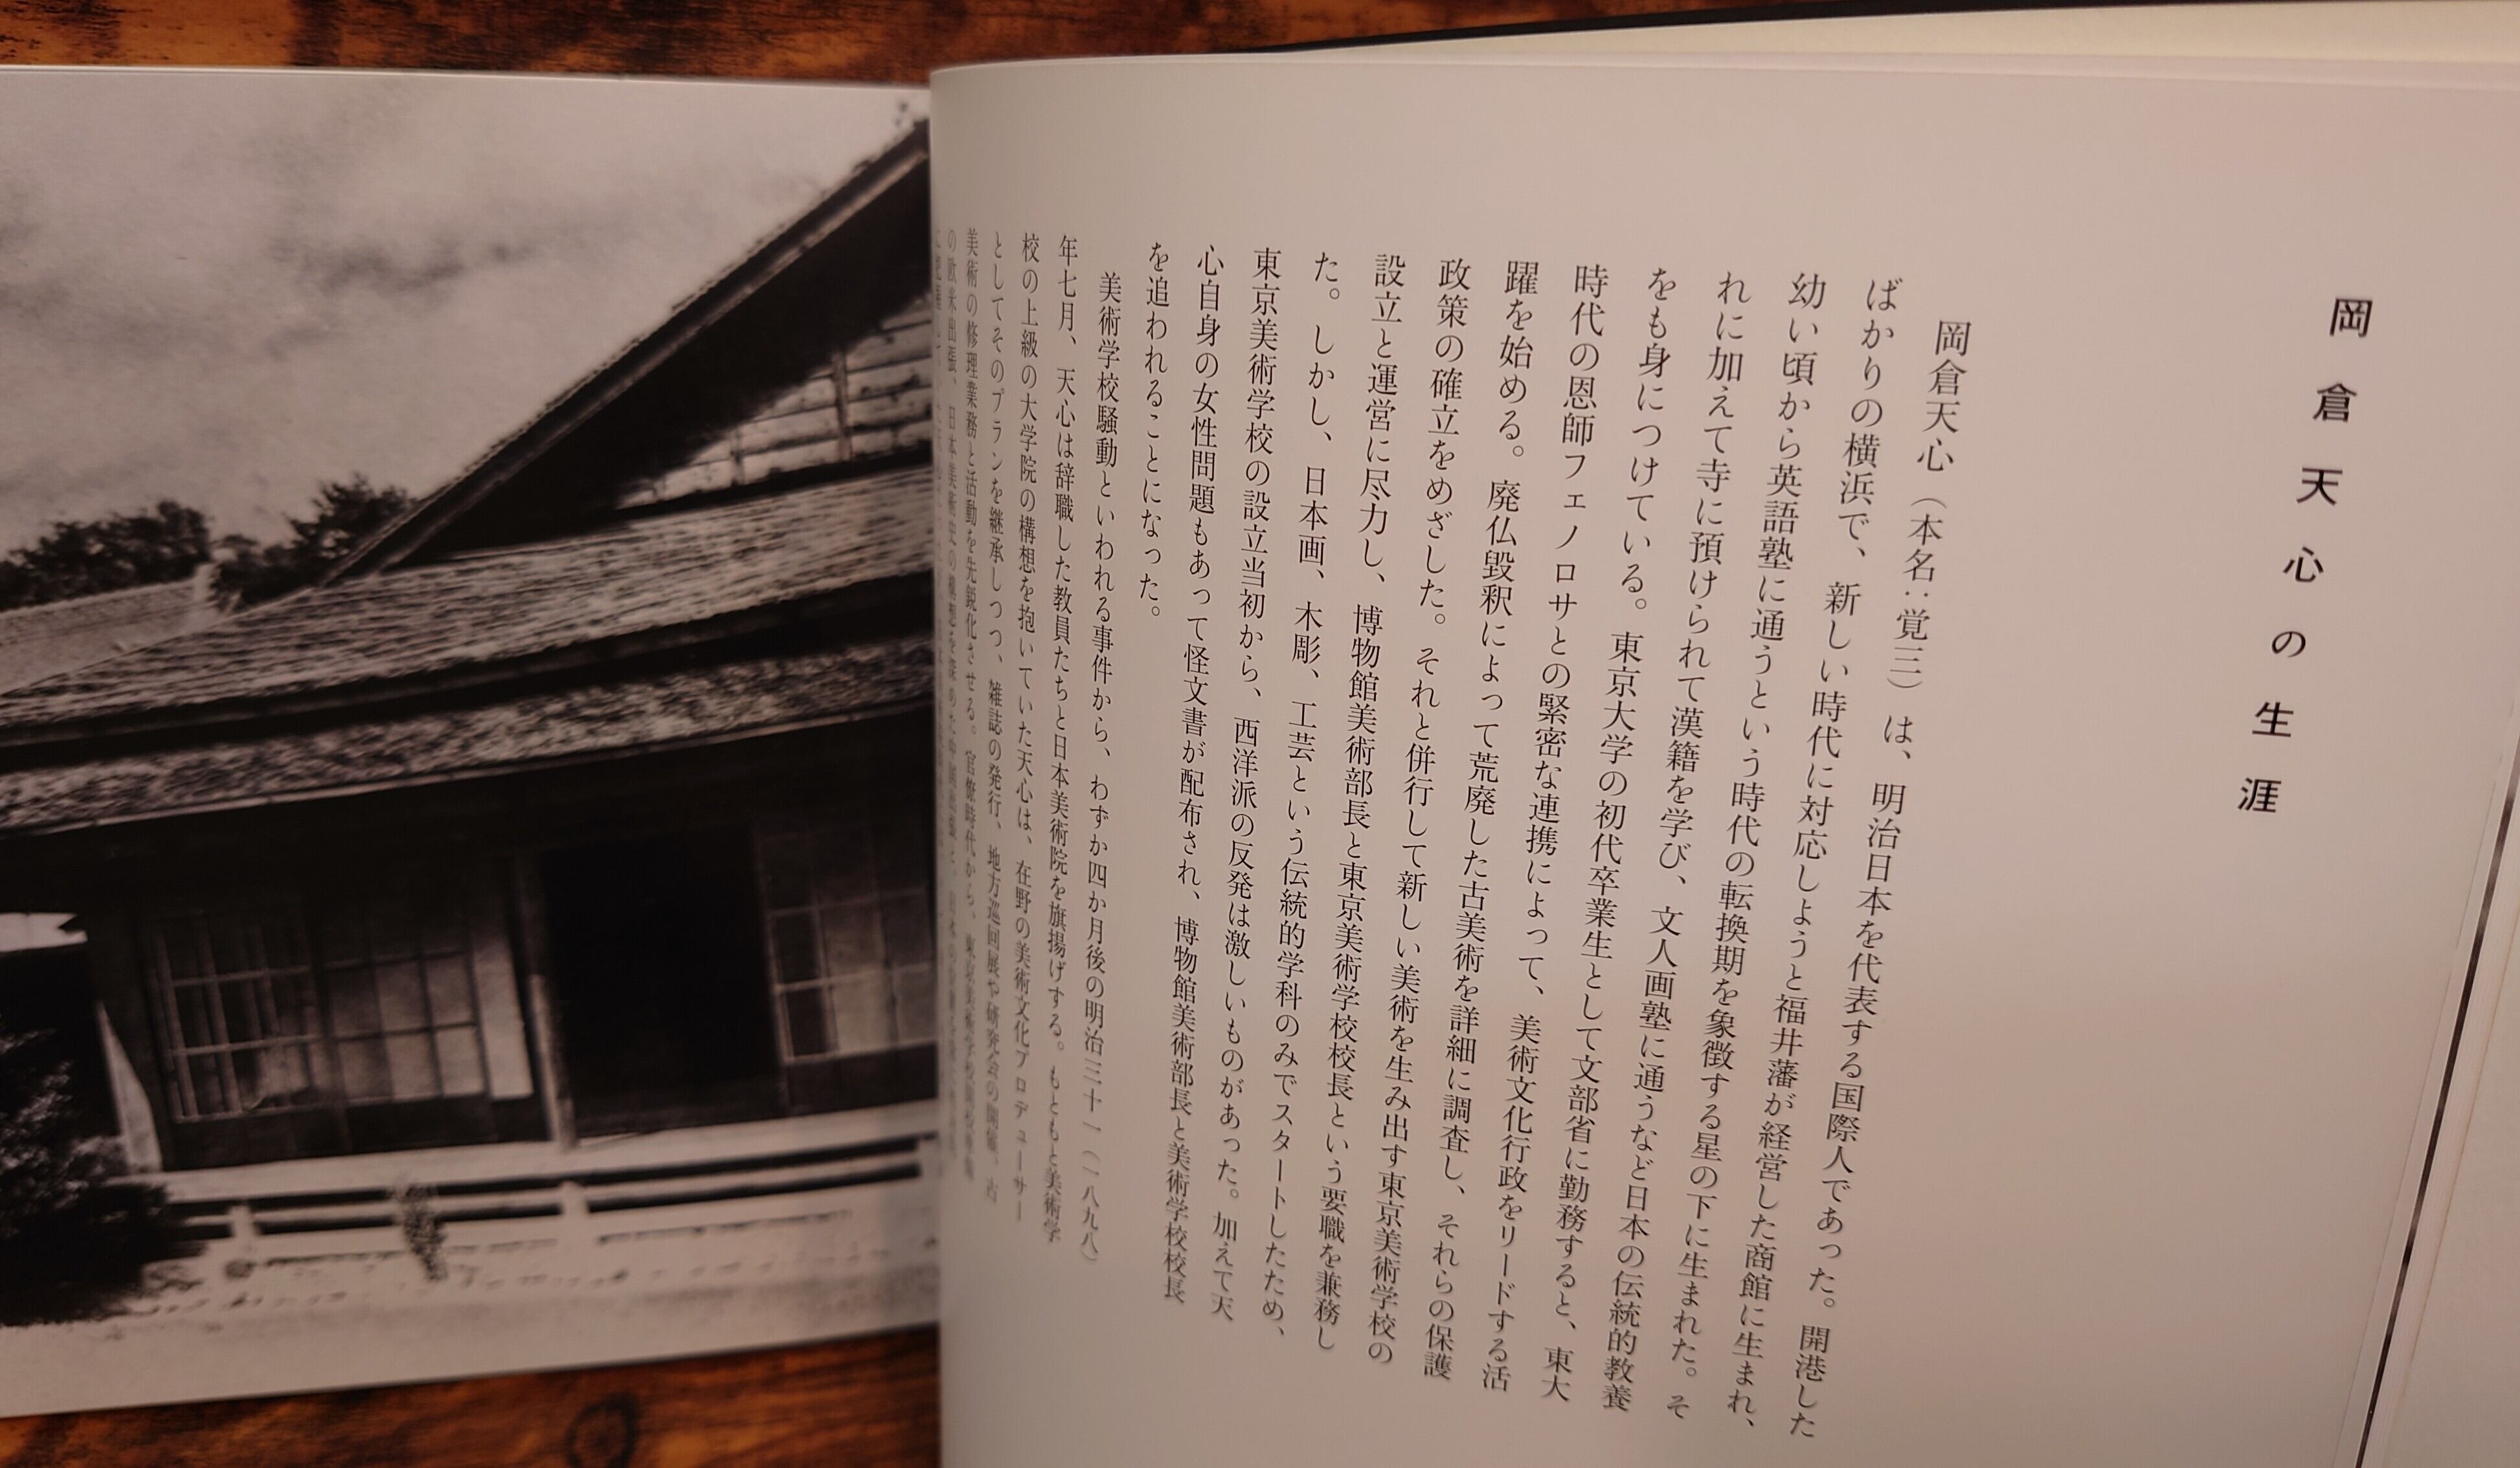 岡倉天心の生涯
岡倉天心（本名：覚三）は、明治日本を代表する国際人であった。開港した
ばかりの横浜で、新しい時代に対応しようと福井藩が経営した商館に生まれ、
幼い頃から英語塾に通うという時代の転換期を象徴する星の下に生まれた。そ
れに加えて寺に預けられて漢籍を学び、文人画塾に通うなど日本の伝統的教養
をも身につけている。東京大学の初代卒業生として文部省に勤務すると、東大
時代の恩師フェノロサとの緊密な連携によって、美術文化行政をリードする活
躍を始める。廃仏毀釈によって荒廃した古美術を詳細に調査し、それらの保護
政策の確立をめざした。それと併行して新しい美術を生み出す東京美術学校の
設立と運営に尽力し、博物館美術部長と東京美術学校校長という要職を兼務し
た。しかし、日本画、木彫、工芸という伝統的学科のみでスタートしたため、
東京美術学校の設立当初から、西洋派の反発は激しいものがあった。加えて天
心自身の女性問題もあって怪文書が配布され、博物館美術部長と美術学校校長
を追われることになった。
美術学校騒動といわれる事件から、わずか四か月後の明治三十一（一八九八）
年七月、天心は辞職した教員たちと日本美術院を旗揚げする。もともと美術学
校の上級の大学院の構想を抱いていた天心は、在野の美術文化プロデューサー
としてそのプランを継承しつつ、雑誌の発行、地方巡回展や研究会の開催、古
美術の修理業務と活動を先鋭化させる。官僚時代から、東京美術学校開校準備
の欧米出張、日本美術史の構想を深めた中国出張と、日本の